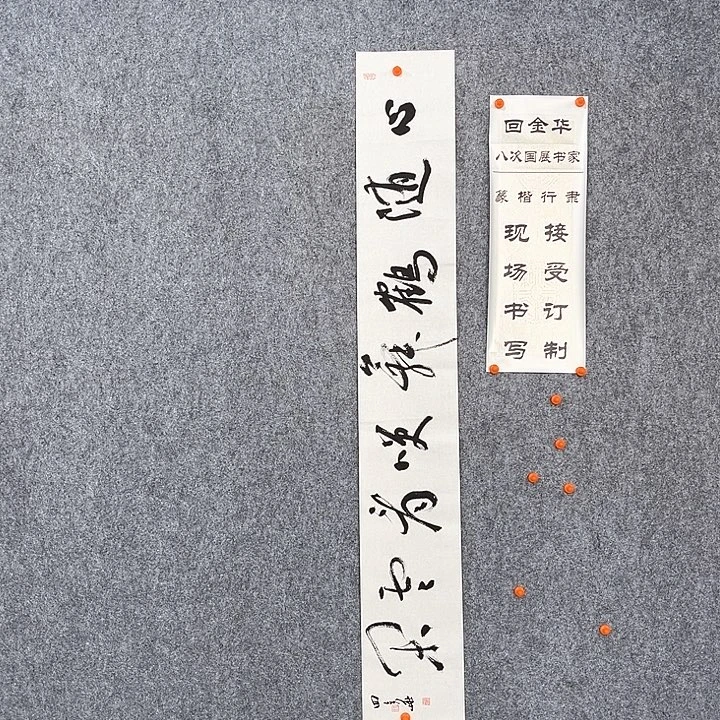 心随鹤舞咲看云飞
回金华
八次国展书家
篆楷行隶
接受订制
现场书写